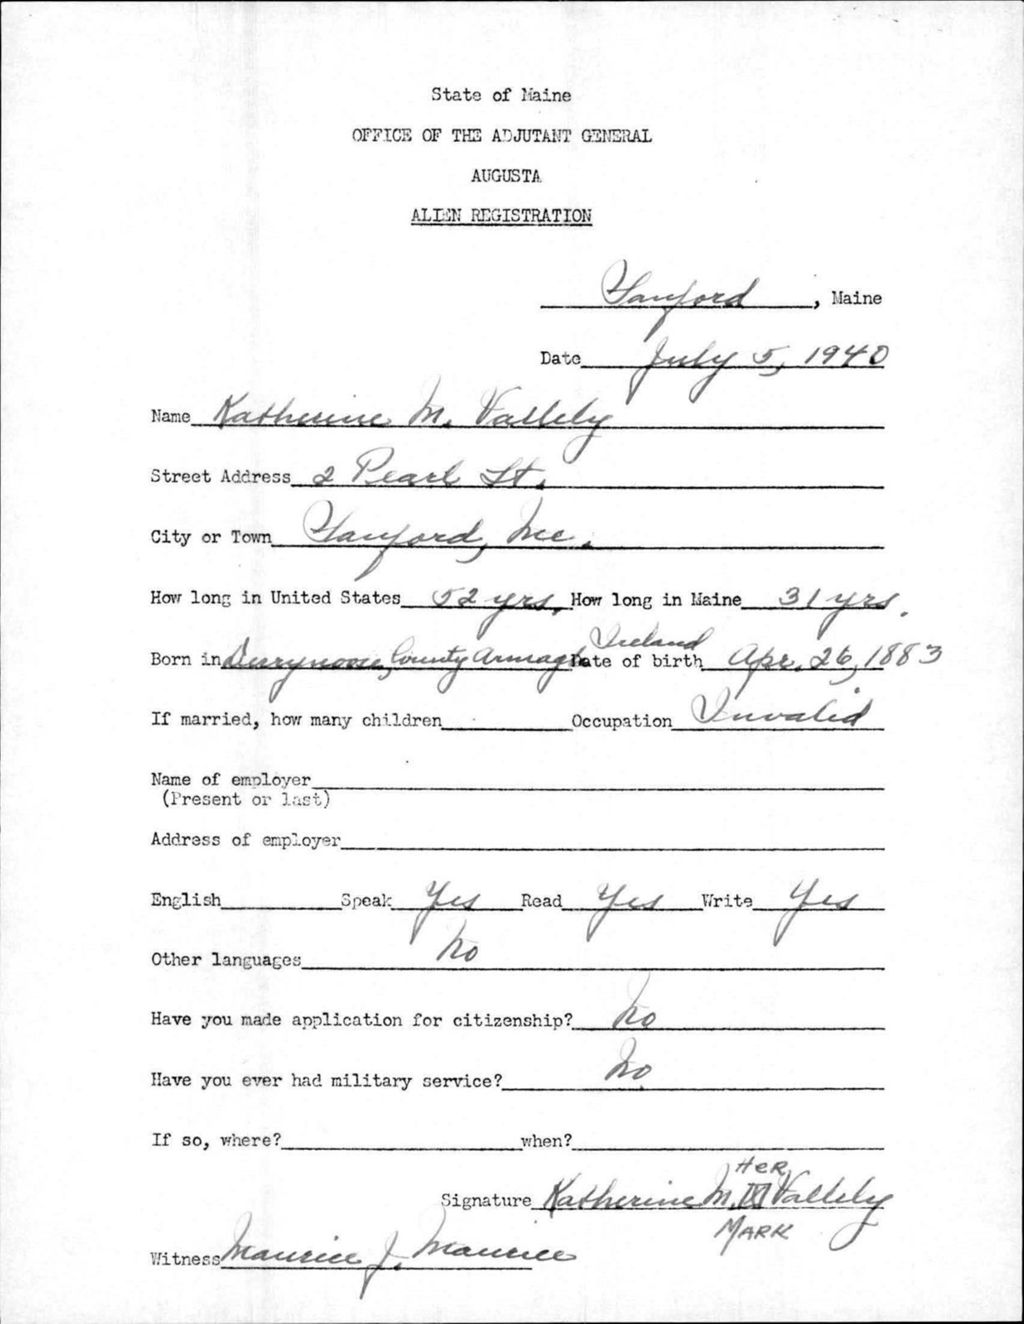 State of Maine
OFFICE OF THE ADJUTANT GENERAL
AUGUSTA
ALIEN REGISTRATION
Sanford, Maine
Date July 5, 1940
Name Katherine M. Vallely
Street Address 2 Pearl St.
City or Town Sanford, Me.
How long in United States 52 yrs. How long in Maine 31 yrs.
Born in Derrynoose, County Armagh Ireland Date of birth Apr. 26, 1883
If married, how many children Occupation Invalid
Name of employer
(Present or last)
Address of employer
English Speak Yes Read Yes Write Yes
Other languages No
Have you made application for citizenship? No
Have you ever had military service? No
If so, where? when?
HER
Signature Katherine M. X Vallely
MARK
Witness Maurice J. Maurice